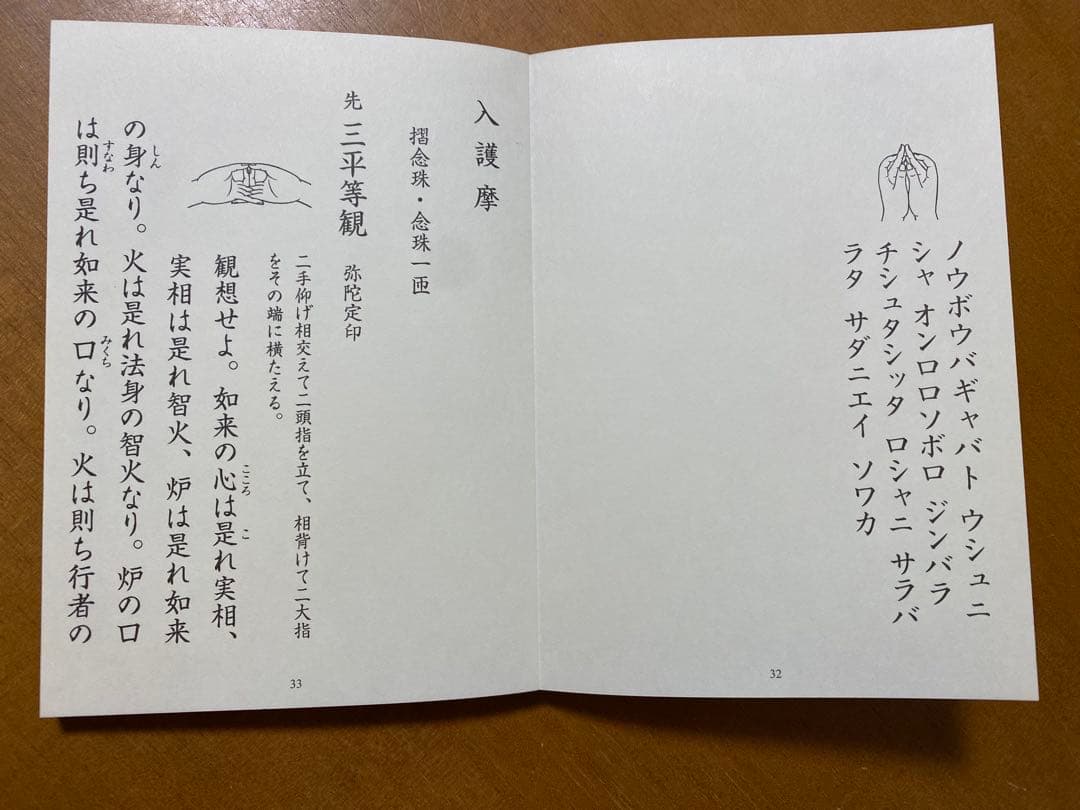 ノウボウバギャバト ウシュニ
シャ オンロロソボロ ジンバラ
チシュタシッタ ロシャニ サラバ
ラタ サダニエイ ソワカ
32
入護摩
摺念珠・念珠一匝
先 三平等観 弥陀定印
二手仰げ相交えて二頭指を立て、相背けて二大指
をその端に横たえる。
観想せよ。如来の心は是れ実相、
こころ
こ
実相は是れ智火、炉は是れ如来
の身なり。火は是れ法身の智火なり。炉の口
しん
は則ち是れ如来の口なり。火は則ち行者の
すなわ
みくち
33